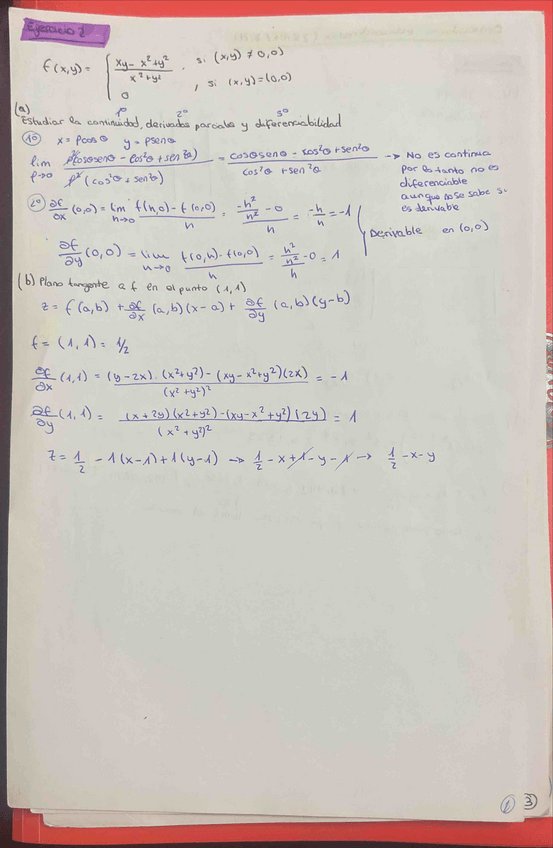 Ejercicio 1
f(x,y) = { xy - x²+y² / x²+y² . si (x,y) ≠ 0,0)
0 , si (x,y)=(0,0)
(a) 1º 2º 3º
Estudiar la continuidad, derivadas parciales y diferenciabilidad
1º x = ρcosθ y = ρsenθ
lim ρ→0 ρ²(cosθsenθ - cos²θ + sen²θ) / ρ²(cos²θ + senθ) = cosθsenθ - cos²θ + sen²θ / cos²θ + sen²θ → No es continua
por lo tanto no es
diferenciable
aunque no se sabe si
es derivable
2º ∂f/∂x (0,0) = lim h→0 f(h,0) - f(0,0) / h = -h²/h² - 0 / h = -h/h = -1
Derivable en (0,0)
∂f/∂y (0,0) = lim h→0 f(0,h) - f(0,0) / h = h²/h² - 0 / h = 1
(b) Plano tangente a f en el punto (1,1)
z = f(a,b) + ∂f/∂x (a,b)(x-a) + ∂f/∂y (a,b)(y-b)
f = (1,1) = 1/2
∂f/∂x (1,1) = (y-2x).(x²+y²) - (xy-x²+y²)(2x) / (x²+y²)² = -1
∂f/∂y (1,1) = (x+2y)(x²+y²) - (xy-x²+y²)(2y) / (x²+y²)² = 1
z = 1/2 - 1(x-1) + 1(y-1) → 1/2 - x + 1 - y - 1 → 1/2 - x - y
1 3